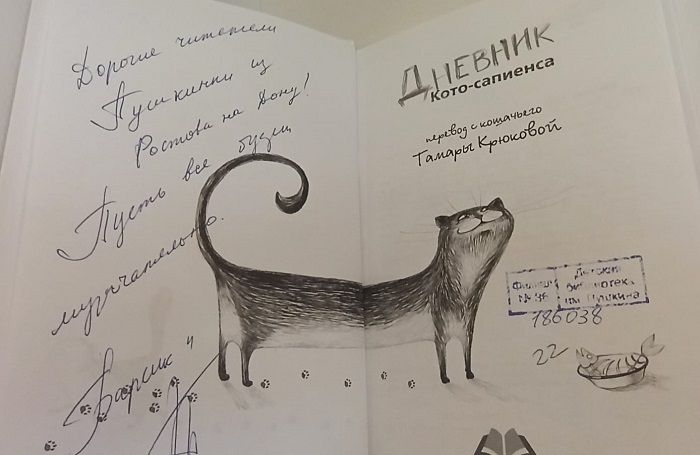 Дорогие читатели
Пушкинки из
Ростова на Дону!
Пусть все будет
мурчательно.
Барсик и
ДНЕВНИК
Кото-сапиенса
перевод с кошачьего
Тамары Крюковой
Филиал
№ 36
Детская
библиотека
им. Пушкина
186038
22